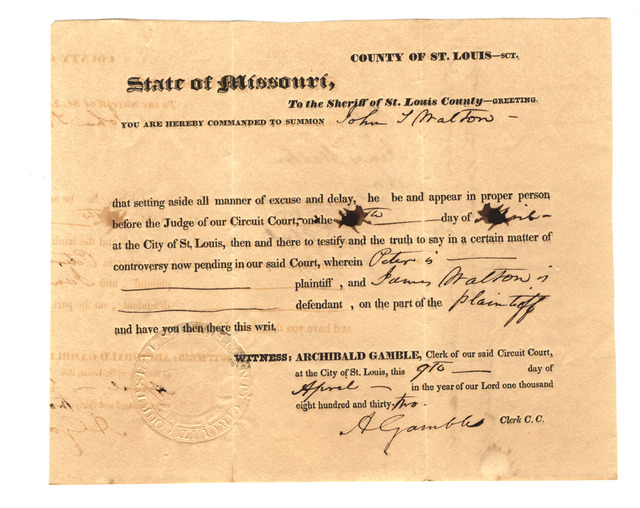 COUNTY OF ST. LOUIS—SCT.
State of Missouri,
To the Sheriff of St. Louis County—GREETING.
YOU ARE HEREBY COMMANDED TO SUMMON John S Walton —
that setting aside all manner of excuse and delay, he be and appear in proper person
before the Judge of our Circuit Court, on the th day of
at the City of St. Louis, then and there to testify and the truth to say in a certain matter of
controversy now pending in our said Court, wherein Peter is
plaintiff , and James Walton is
defendant , on the part of the plaintiff
and have you then there this writ.
WITNESS: ARCHIBALD GAMBLE, Clerk of our said Circuit Court,
at the City of St. Louis, this 9th day of
April — in the year of our Lord one thousand
eight hundred and thirty-two.
A Gamble Clerk C. C.